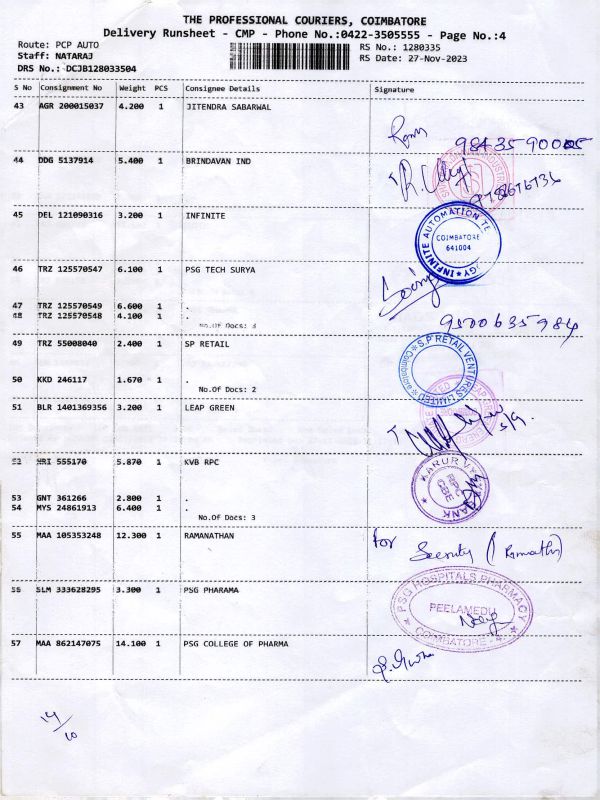 THE PROFESSIONAL COURIERS, COIMBATORE
Delivery Runsheet - CMP - Phone No.:0422-3505555 - Page No.:4
Route: PCP AUTO RS No.: 1280335
Staff: NATARAJ RS Date: 27-Nov-2023
DRS No.: DCJB128033504
S No Consignment No Weight PCS Consignee Details Signature
43 AGR 200015037 4.200 1 JITENDRA SABARWAL
44 DDG 5137914 5.400 1 BRINDAVAN IND
45 DEL 121090316 3.200 1 INFINITE
INFINITE AUTOMATION TE
COIMBATORE
641004
46 TRZ 125570547 6.100 1 PSG TECH SURYA
47 TRZ 125570549 6.600 1 .
48 TRZ 125570548 4.100 1 .
No.Of Docs: 3
9500635984
49 TRZ 55008040 2.400 1 SP RETAIL
S.P RETAIL VENTURES LIMITED
Coimbatore
50 KKD 246117 1.670 1 .
No.Of Docs: 2
51 BLR 1401369356 3.200 1 LEAP GREEN
52 NRI 555170 5.870 1 KVB RPC
KARUR VYSYA BANK
RPC
CBE
53 GNT 361266 2.800 1 .
54 MYS 24861913 6.400 1 .
No.Of Docs: 3
55 MAA 105353248 12.300 1 RAMANATHAN
for Security
56 SLM 333628295 3.300 1 PSG PHARAMA
PSG HOSPITALS PHARMACY
PEELAMEDU
COIMBATORE - 4.
57 MAA 862147075 14.100 1 PSG COLLEGE OF PHARMA
14/10